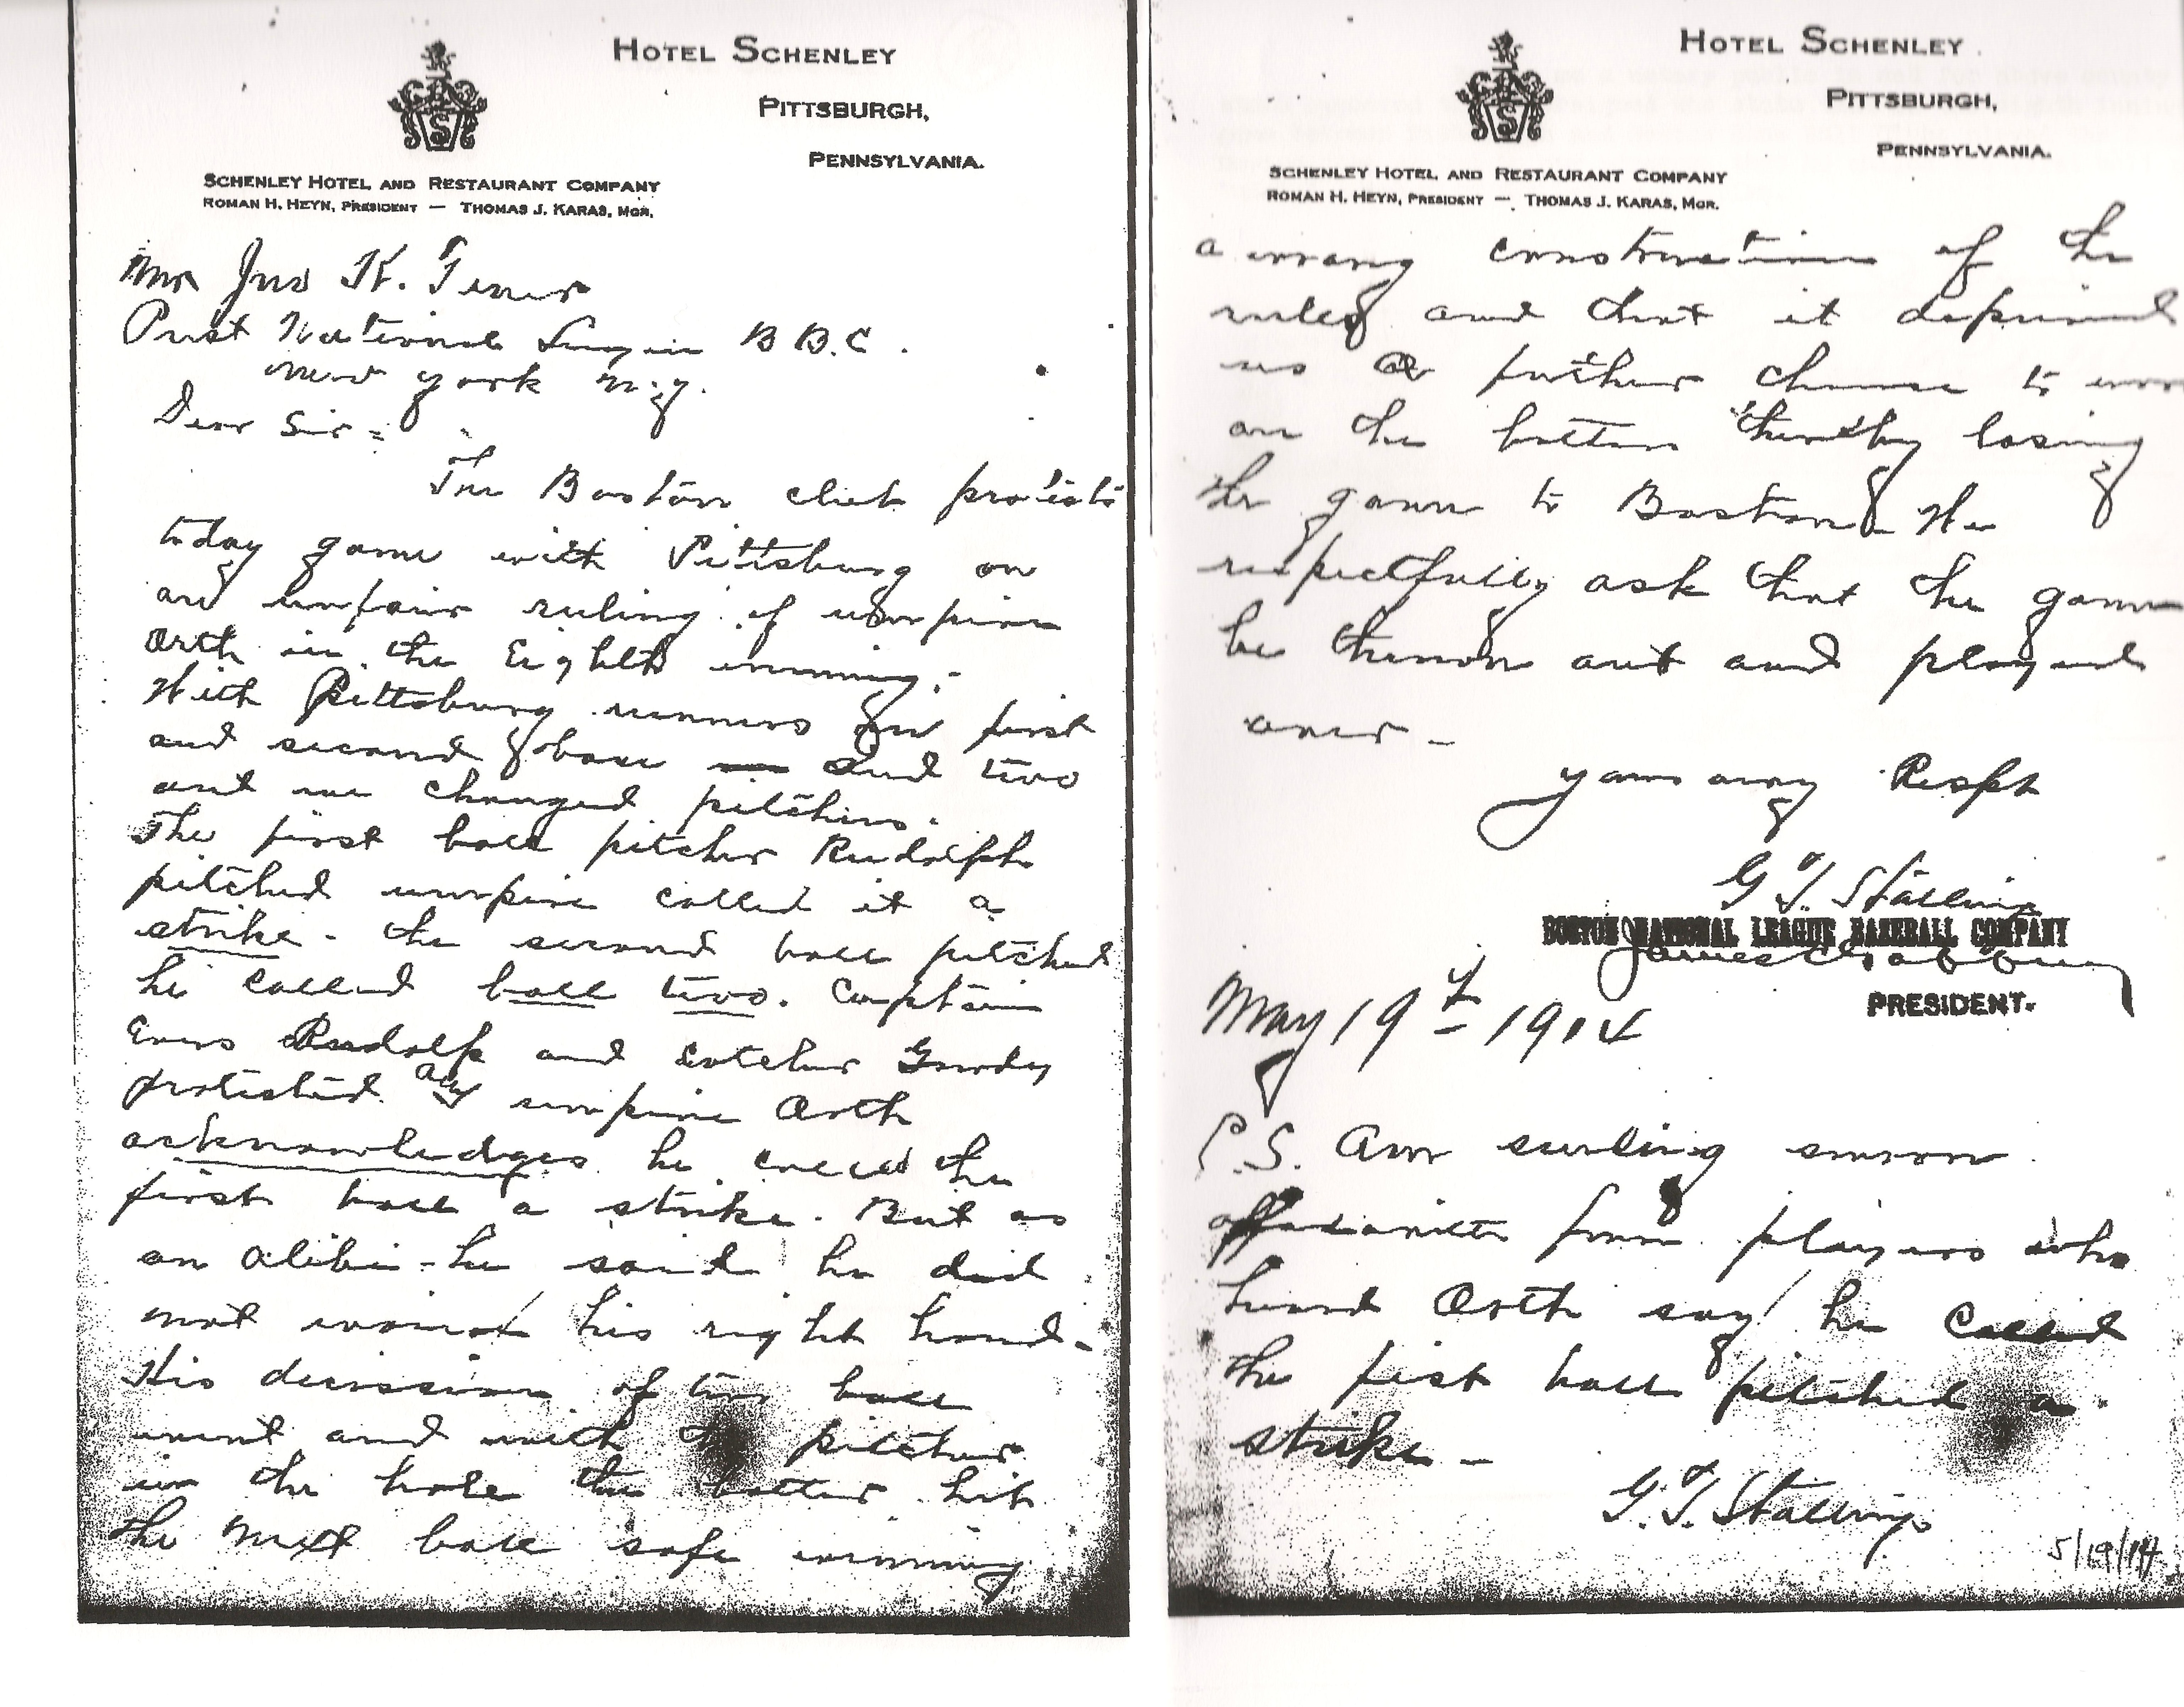 HOTEL SCHENLEY
PITTSBURGH,
PENNSYLVANIA.
SCHENLEY HOTEL AND RESTAURANT COMPANY
ROMAN H. HEYN, PRESIDENT — THOMAS J. KARAS, MGR.
Mr Jno K. Tener
Prest National League B B.C.
New York N.Y.
Dear Sir =
The Boston club protests
today game with Pittsburg on
an unfair ruling of umpire
Orth in the Eighth inning.
With Pittsburg runners on first
and second base and two
out we changed pitchers.
The first ball pitcher Rudolph
pitched umpire called it a
strike. the second ball pitched
he called ball two. Captain
Evers Rudolph and catcher Gowdy
protested umpire Orth
acknowledges he called the
first ball a strike. But as
an alibi - he said he did
not his right hand -
His decision of two balls
went and with the pitcher
in the hole the batter hit
the next ball safe winning
HOTEL SCHENLEY
PITTSBURGH,
PENNSYLVANIA.
SCHENLEY HOTEL AND RESTAURANT COMPANY
ROMAN H. HEYN, PRESIDENT — THOMAS J. KARAS, MGR.
a wrong construction of the
rules and that it deprived
us a further chance to work
on the batter thereby losing
the game to Boston. We
respectfully ask that the game
be thrown out and played
over -
yours very Respt
G T. Stallings
BOSTON NATIONAL LEAGUE BASEBALL COMPANY
James E Gaffney
PRESIDENT.
May 19th 1914
P.S. Am sending sworn
affidavits from players who
heard Orth say he called
the first ball pitched a
strike -
G. T. Stallings
5/19/14